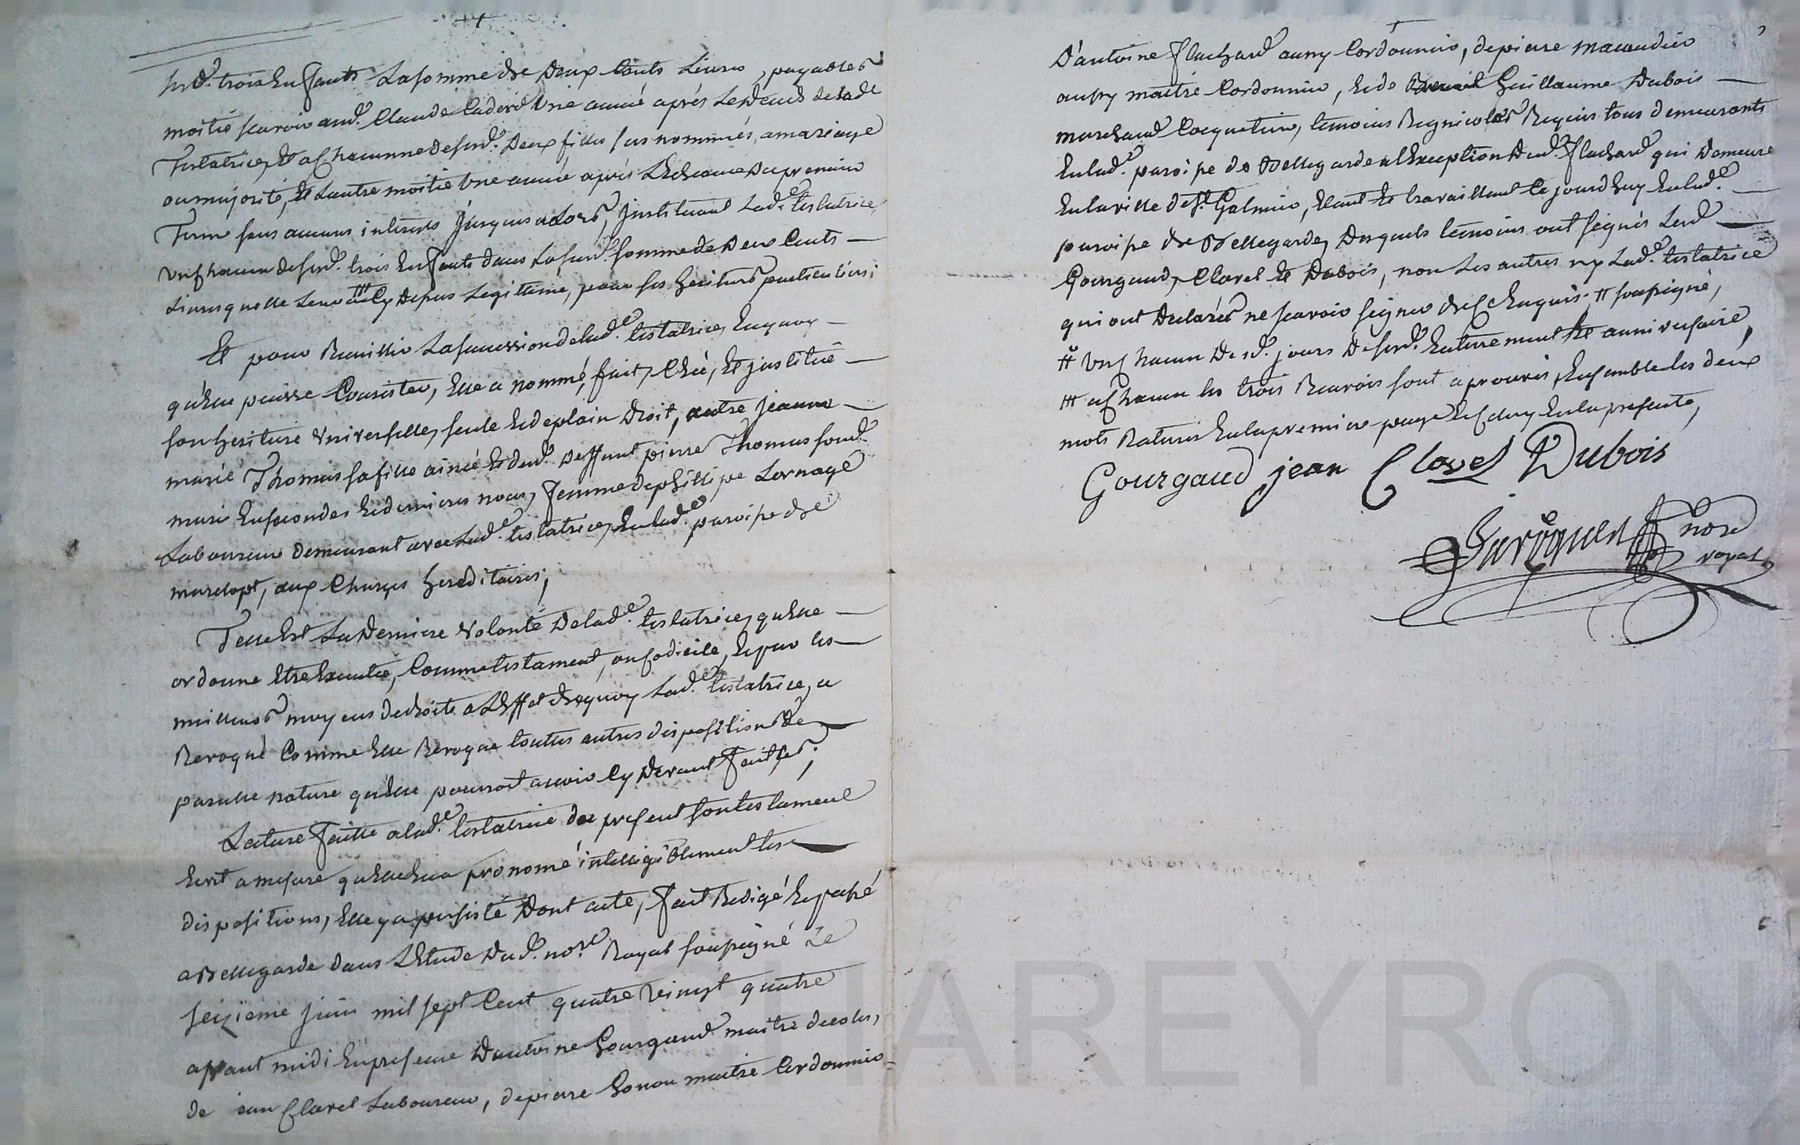 susd. trois Enfants La somme de deux Cents Livres, payables
moitié scavoir aud. Claude une année après Le Deces de lade
Testatrice, Et a chacunne desd. Deux filles sus nommés, a mariage
ou majorité, Et Lautre moitié Une année après L'Echeance Du premier
Terme sans aucuns interests jusques alors, jnstituant Lade. testatrice
un chacun desd. trois Enfants dans La susd. somme de Deux Cents
Livres quelle Leur a Cy Dessus Legittimé, pour ses heritiers particuliers;
Et pour Recuillir La succession de lade. testatrice, En quoy
qu'Elle puisse Consister, Elle a nommé, fait, Créé, Et jnstitué
son heritiere Universelle, seule Et de plain Droit, autre jeanne
marie Thomas sa fille ainée Et dud. Deffunt pierre Thomas son d.
mari En secondes Et dernieres noces, femme de phillipe Lornage
Laboureur demeurant avec Lade. testatrice, En lade. paroisse de
maredopt, aux Charges hereditaires;
Telle Est La Derniere Volonté De lade. testatrice, qu'Elle
ordonne Etre Executée, Comme testament, ou Codicile, Et par les
meilleurs moyens de droits a L'Effet de quoy Lade. testatrice, a
Revoqué Comme Elle Revoque touttes autres dispositions De
pareille nature qu'Elle pourroit avoir Cy Devant faittes;
Lecture faitte a lade. testatrice du present son testament
Ecrit a mesure qu'Elle En a prononcé intelligiblement les
dispositions, Elle y a persisté Dont acte, fait Redigé Et passé
a Bellegarde dans L'Etude Dud. nore. Royal soussigné Le
seizieme juin mil sept Cent quatre vingt quatre
avant midi En presence D'antoine Gourgaud maitre d'ecoles,
de jean Clavel Laboureur, de pierre Gonon maitre Cordonnier
D'antoine flachard aussy Cordonnier, de pierre
aussy maitre Cordonnier, Et de Guillaume Dubois
marchand Cocquetier, temoins Regnicoles Requis tous demeurants
En lade. paroisse de Bellegarde a l'Exception Dud. flachard qui Demeure
En la ville de St Galmier, Etant Et travaillant Ce jourd'huy En lade.
paroisse de Bellegarde, Desquels temoins ont signés Lesd.
Gourgaud, Clavel Et Dubois, non Les autres ny Lade. testatrice
qui ont Declarés ne scavoir signer de Ce Enquis. # soussigné,
# Un chacun De sd. jours De sond. Enterrement Et anniversaire,
### a chacun les trois Renvois sont aprouvés, Ensemble les deux
mots Raturés En la premiere page Et En la presente,
Gourgaud jean Clavel Dubois
nore
royal
CHAREYRON